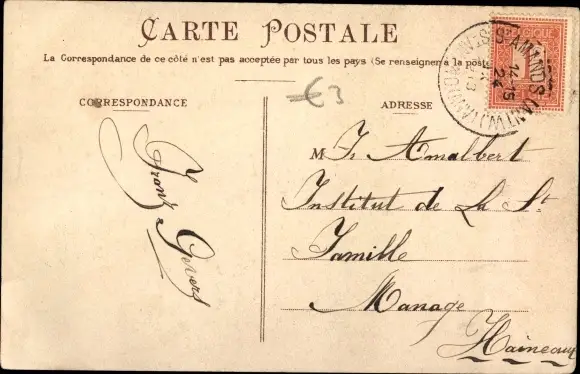 CARTE POSTALE
La Correspondance de ce côté n'est pas acceptée par tous les pays (Se renseigner à la poste
CORRESPONDANCE
€3
ADRESSE
Franz Gevers
M Fr Amalbert
Institut de La St
Famille
Manage
Hainaut
ST AMANDS (ANTW)
14-15
24